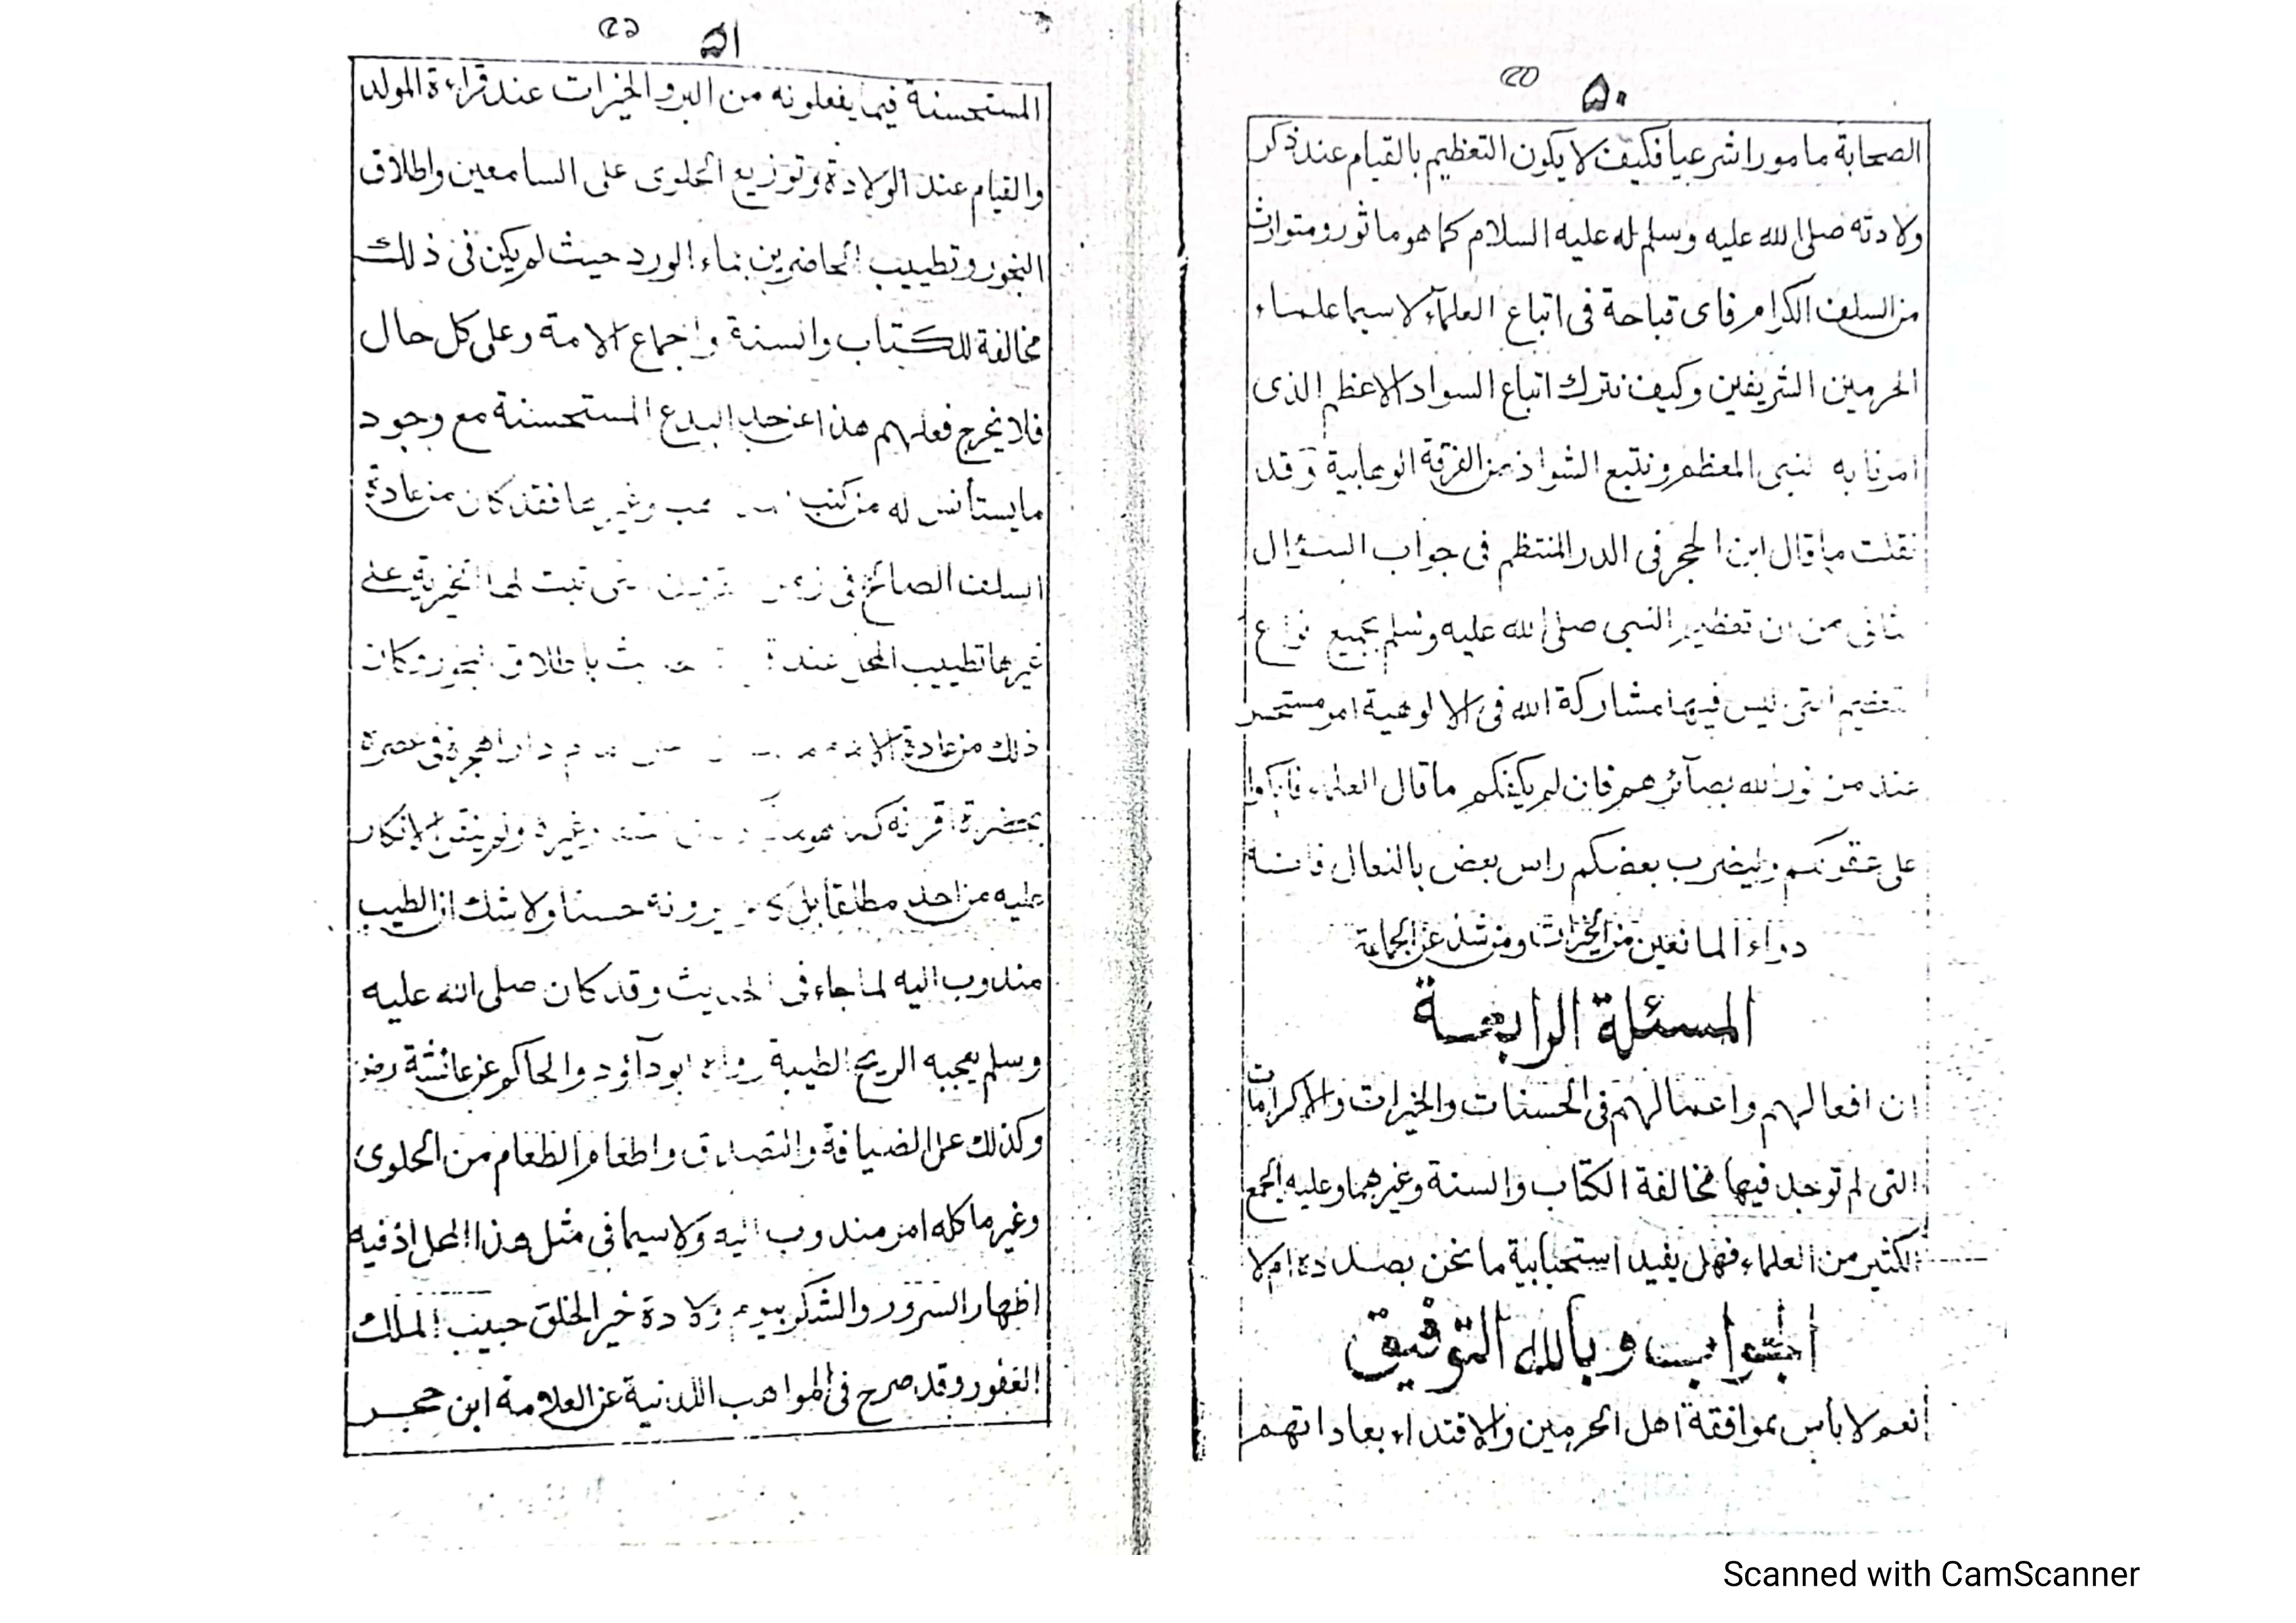 ٥٠
الصحابة مامورا شرعيا فكيف لا يكون التعظيم بالقيام عند ذكر
ولادته صلى الله عليه وسلم له عليه السلام كما هو ماثور ومتوارث
من السلف الكرام فاى قباحة فى اتباع العلمآء لاسيما علماء
الحرمين الشريفين وكيف نترك اتباع السواد الاعظم الذى
امرنا به النبى المعظم ونتبع الشواذ من الفرقة الوهابية وقد
نقلت ما قال ابن الحجر فى الدر المنتظم فى جواب السؤال
الثانى من ان تعظيم النبى صلى الله عليه وسلم بجميع انواع
التعظيم التى ليس فيها مشاركة الله فى الالوهية امر مستحسن
عند من نور الله بصآئرهم فان لم يكفكم ما قال العلماء فابكوا
على عقولكم وليضرب بعضكم راس بعض بالنعال فانه
دواء المانعين من الخيرات ومن شذ عن الجماعة
المسئلة الرابعة
ان افعالهم واعمالهم فى الحسنات والخيرات والاكرامات
التى لم توجد فيها مخالفة الكتاب والسنة وغيرهما وعليه الجمع
الكثير من العلماء فهل يفيد استحبابية ما نحن بصدده ام لا
الجواب وبالله التوفيق
نعم لا بأس بموافقة اهل الحرمين والاقتداء بعاداتهم
٥١
المستحسنة فيما يفعلونه من البر والخيرات عند قراءة المولد
والقيام عند الولادة وتوزيع الحلوى على السامعين واطلاق
البخور وتطييب الحاضرين بماء الورد حيث لم يكن فى ذلك
مخالفة للكتاب والسنة واجماع الامة وعلى كل حال
فلا يخرج فعلهم هذا عن حد البدع المستحسنة مع وجود
ما يستأنس له من كتب وغيرها فقد كان من عادة
السلف الصالح فى تبت لها الخيرية على
غيرها تطييب المحل عند باطلاق البخور وكان
ذلك من عادة دار الهجرة فى عصره
بحضرة اقرانه كما هو وغيره ولم ينقل الانكار
عليه من احد مطلقا بل يرونه حسنا ولا شك ان الطيب
مندوب اليه لما جاء فى الحديث وقد كان صلى الله عليه
وسلم يعجبه الريح الطيبة رواه ابو دآؤد والحاكم عن عائشة رضـ
وكذلك عمل الضيافة والتصدق واطعام الطعام من الحلوى
وغيرها كله امر مندوب اليه ولاسيما فى مثل هذا المحل اذ فيه
اظهار السرور والشكر بيوم ولادة خير الخلق حبيب الملك
الغفور وقد صرح فى المواهب اللدنية عن العلامة ابن حجر
Scanned with CamScanner